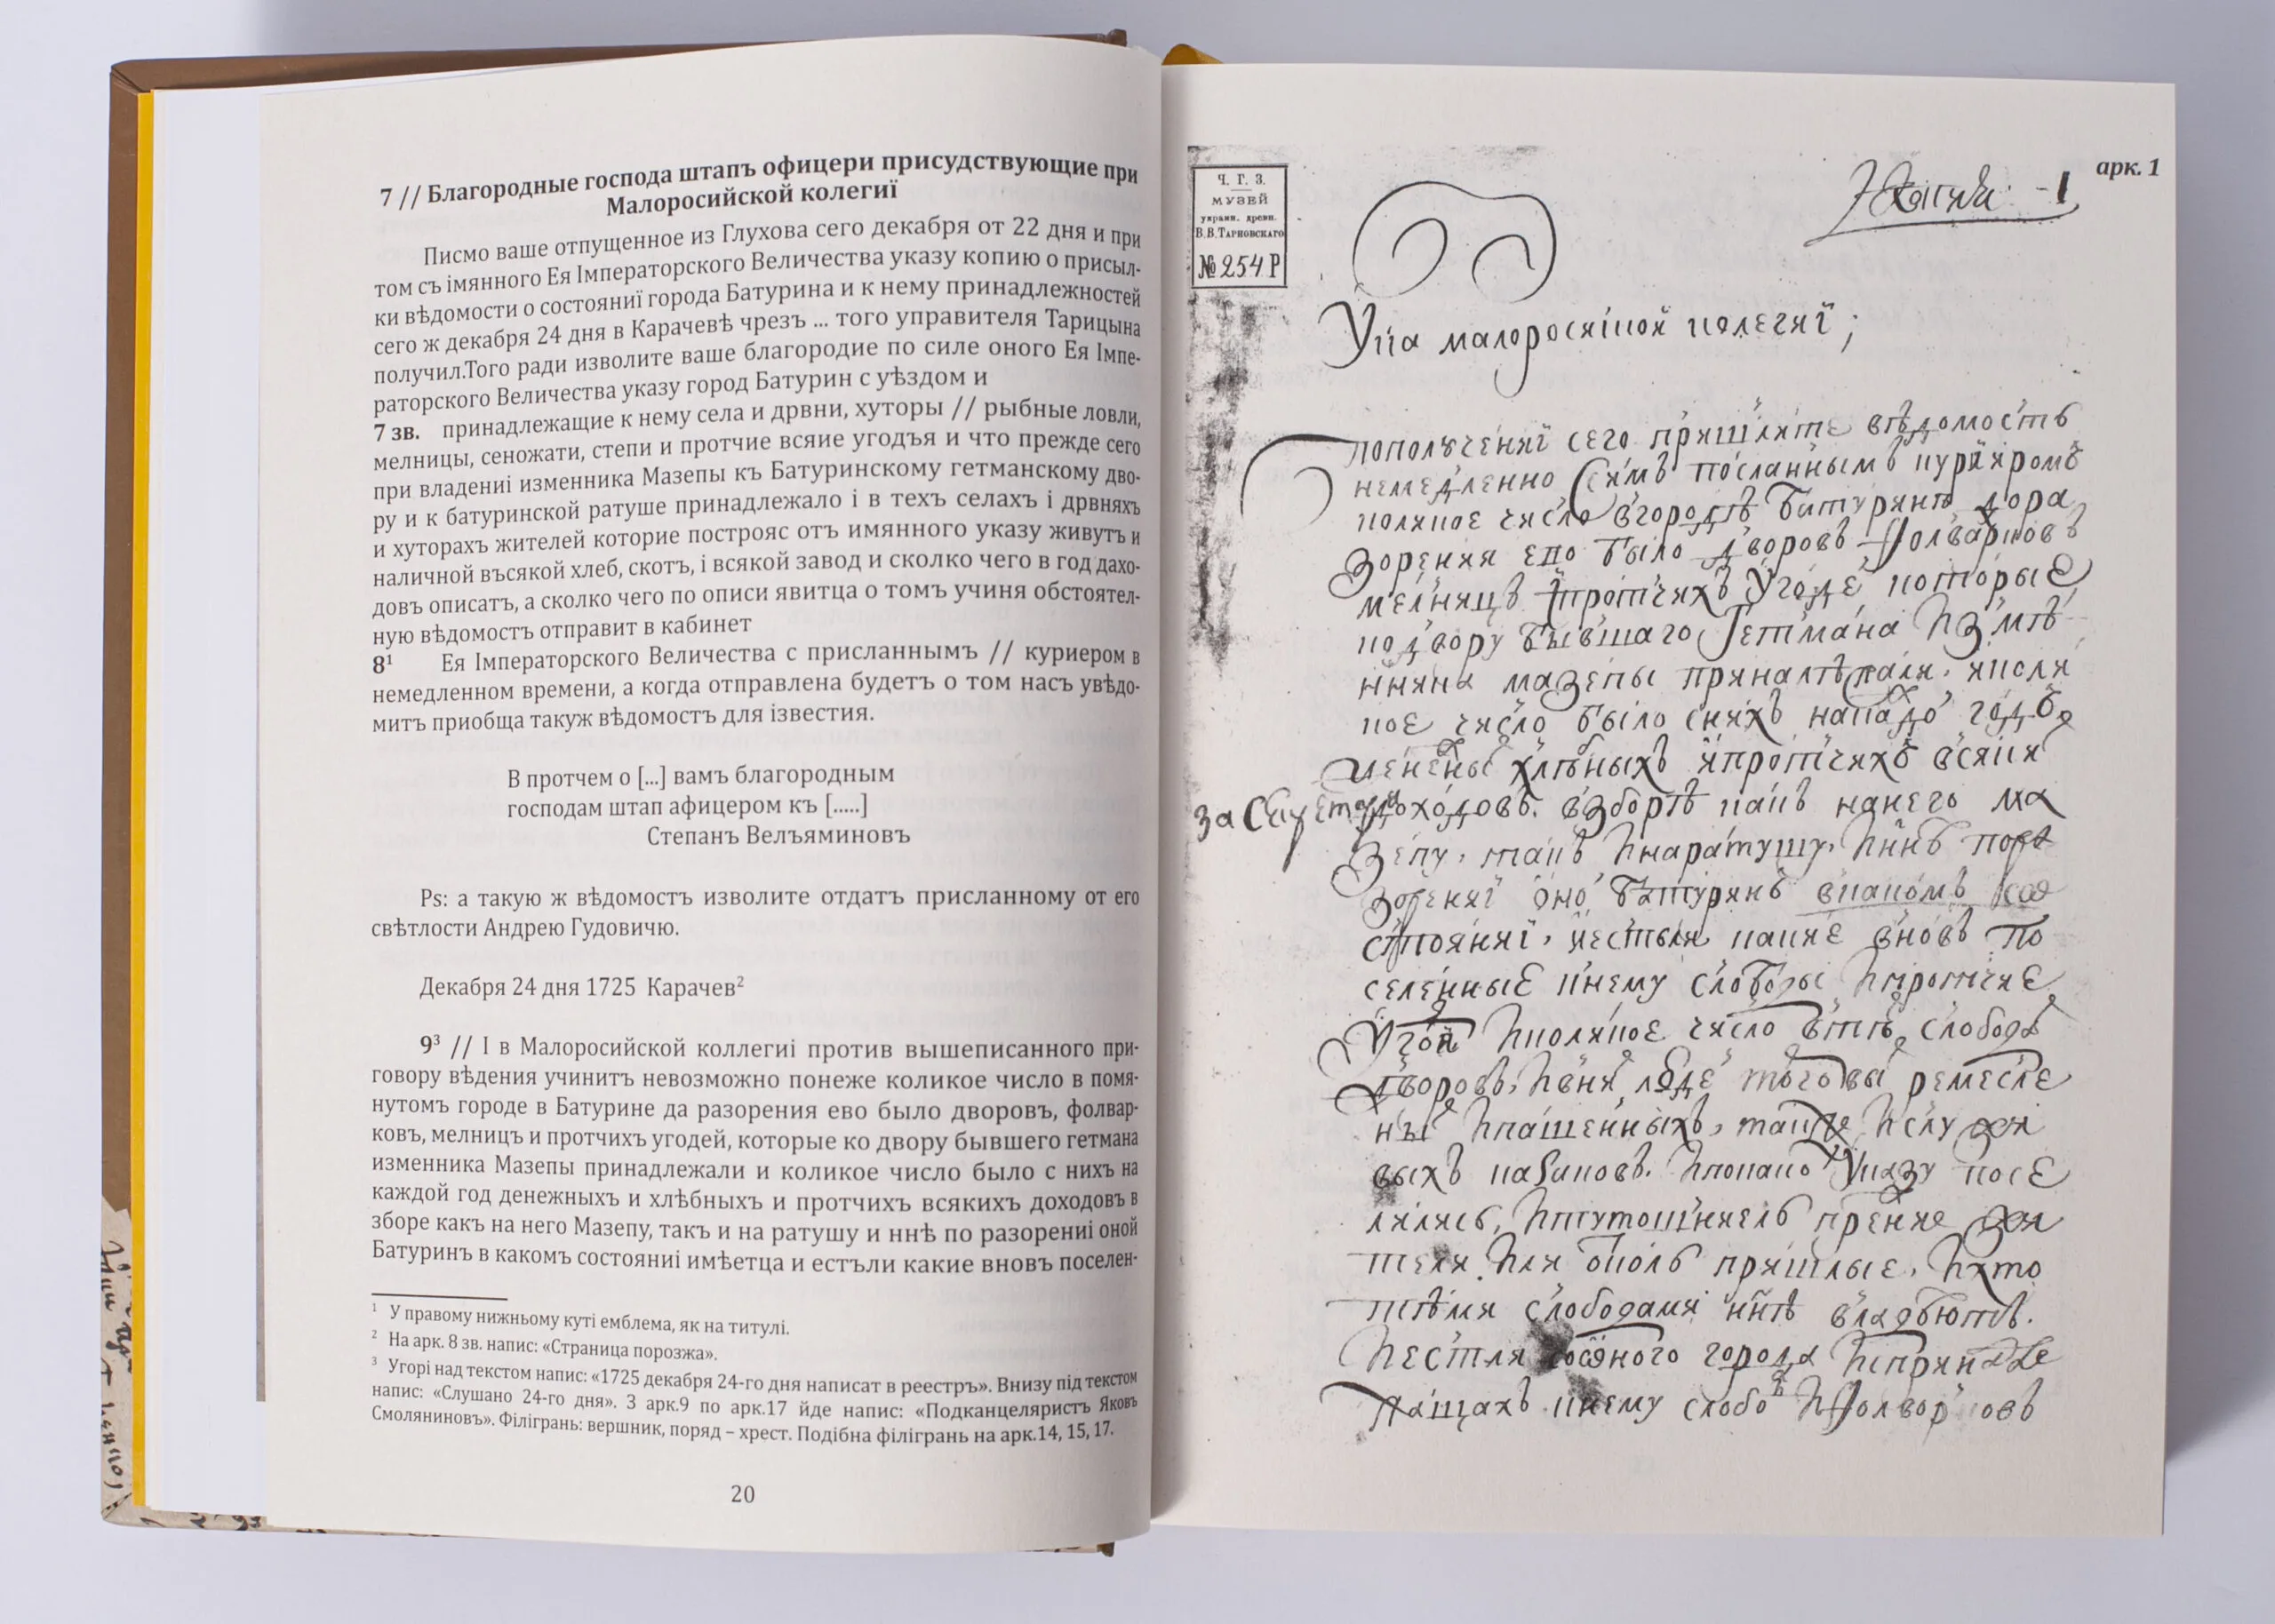 7 // Благородные господа штапъ офицери присудствующие при
Малоросийской колегиї
Писмо ваше отпущенное из Глухова сего декабря от 22 дня и при
том съ імянного Ея Імператорского Величества указу копию о присыл-
ки вѣдомости о состояниї города Батурина и к нему принадлежностей
сего ж декабря 24 дня в Карачевѣ чрезъ ... того управителя Тарицына
получил.Того ради изволите ваше благородие по силе оного Ея Імпе-
раторского Величества указу город Батурин с уѣздом и
7 зв. принадлежащие к нему села и дрвни, хуторы // рыбные ловли,
мелницы, сеножати, степи и протчие всяие угодъя и что прежде сего
при владениі изменника Мазепы къ Батуринскому гетманскому дво-
ру и к батуринской ратуше принадлежало і в техъ селахъ і дрвняхъ
и хуторахъ жителей которие построяс отъ имянного указу живутъ и
наличной въсякой хлеб, скотъ, і всякой завод и сколко чего в год дахо-
довъ описатъ, а сколко чего по описи явитца о томъ учиня обстоятел-
ную вѣдомостъ отправит в кабинет
8¹ Ея Імператорского Величества с присланнымъ // куриером в
немедленном времени, а когда отправлена будетъ о том насъ увѣдо-
митъ приобща такуж вѣдомостъ для ізвестия.
В протчем о [...] вамъ благородным
господам штап афицером къ [.....]
Степанъ Велъяминовъ
Ps: а такую ж вѣдомостъ изволите отдатъ присланному от его
свѣтлости Андрею Гудовичю.
Декабря 24 дня 1725 Карачев²
9³ // І в Малоросийской коллегиі против вышеписанного при-
говору вѣдения учинитъ невозможно понеже коликое число в помя-
нутомъ городе в Батурине да разорения ево было дворовъ, фолвар-
ковъ, мелницъ и протчихъ угодей, которые ко двору бывшего гетмана
изменника Мазепы принадлежали и коликое число было с нихъ на
каждой год денежныхъ и хлѣбныхъ и протчихъ всякихъ доходовъ в
зборе какъ на него Мазепу, такъ и на ратушу и ннѣ по разорениі оной
Батуринъ в какомъ состояниі имѣетца и естъли какие вновъ поселен-
¹ У правому нижньому куті емблема, як на титулі.
² На арк. 8 зв. напис: «Страница порозжа».
³ Угорі над текстом напис: «1725 декабря 24-го дня написат в реестръ». Внизу під текстом
напис: «Слушано 24-го дня». З арк.9 по арк.17 йде напис: «Подканцеляристъ Яковъ
Смоляниновъ». Філігрань: вершник, поряд – хрест. Подібна філігрань на арк.14, 15, 17.
20
арк. 1
Ч. Г. З.
МУЗЕЙ
украин. древн.
В.В.Тарновскаго
№ 254 Р
1
малоросиіской колегиї;
пополученяї сего пришлите вѣдомостъ
немедленно симъ посланнымъ куриеромъ
коликое число вгородѣ батуринѣ дора
зорения ево было дворовъ фолварковъ
мелницъ ипротчихъ угоде которые
кодвору бывшаго гетмана измѣ
нника мазепы приналѣжали, иколи
кое число было снихъ накаждо годъ
денежны хлѣбныхъ ипротчихъ всяки
доходовъ. взборѣ какъ нанего ма
зепу, такъ инаратушу, иннѣ пора
зорениї оно батуринъ вкакомъ со
стоянии, иестьли какие вновъ по
селенные кнему слободы ипротчие
угоди иколикое число втѣ слобода
дворовъ, ивни люде торговы ремесле
ны ипашенныхъ, также ислужи
выхъ казаковъ. ипокако указу посе
лились, итутошниель прежние жи
тели или отколь пришлые, ихто
тѣми слободами ннѣ владѣютъ.
иестли воного города ипринадле
жащахъ кнему слобо ифолварковъ